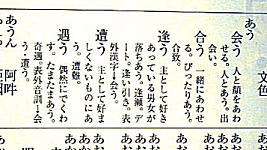 文色
あう
会う 人と顔をあわ
せる。人とあう。出
会い。
合う 一緒にあわせ
る。ぴったりあう。
合致。
逢う 主として好き
あっている男女が
落ちあう。逢瀬。デ
ート。逢い引き。表
外漢字→会う。
遭う 主として好ま
しくないものにあ
う。遭難。
遇う 偶然にでくわ
す。たまたまあう。
奇遇。表外音訓→会
う・遭う。
あうん 阿吽